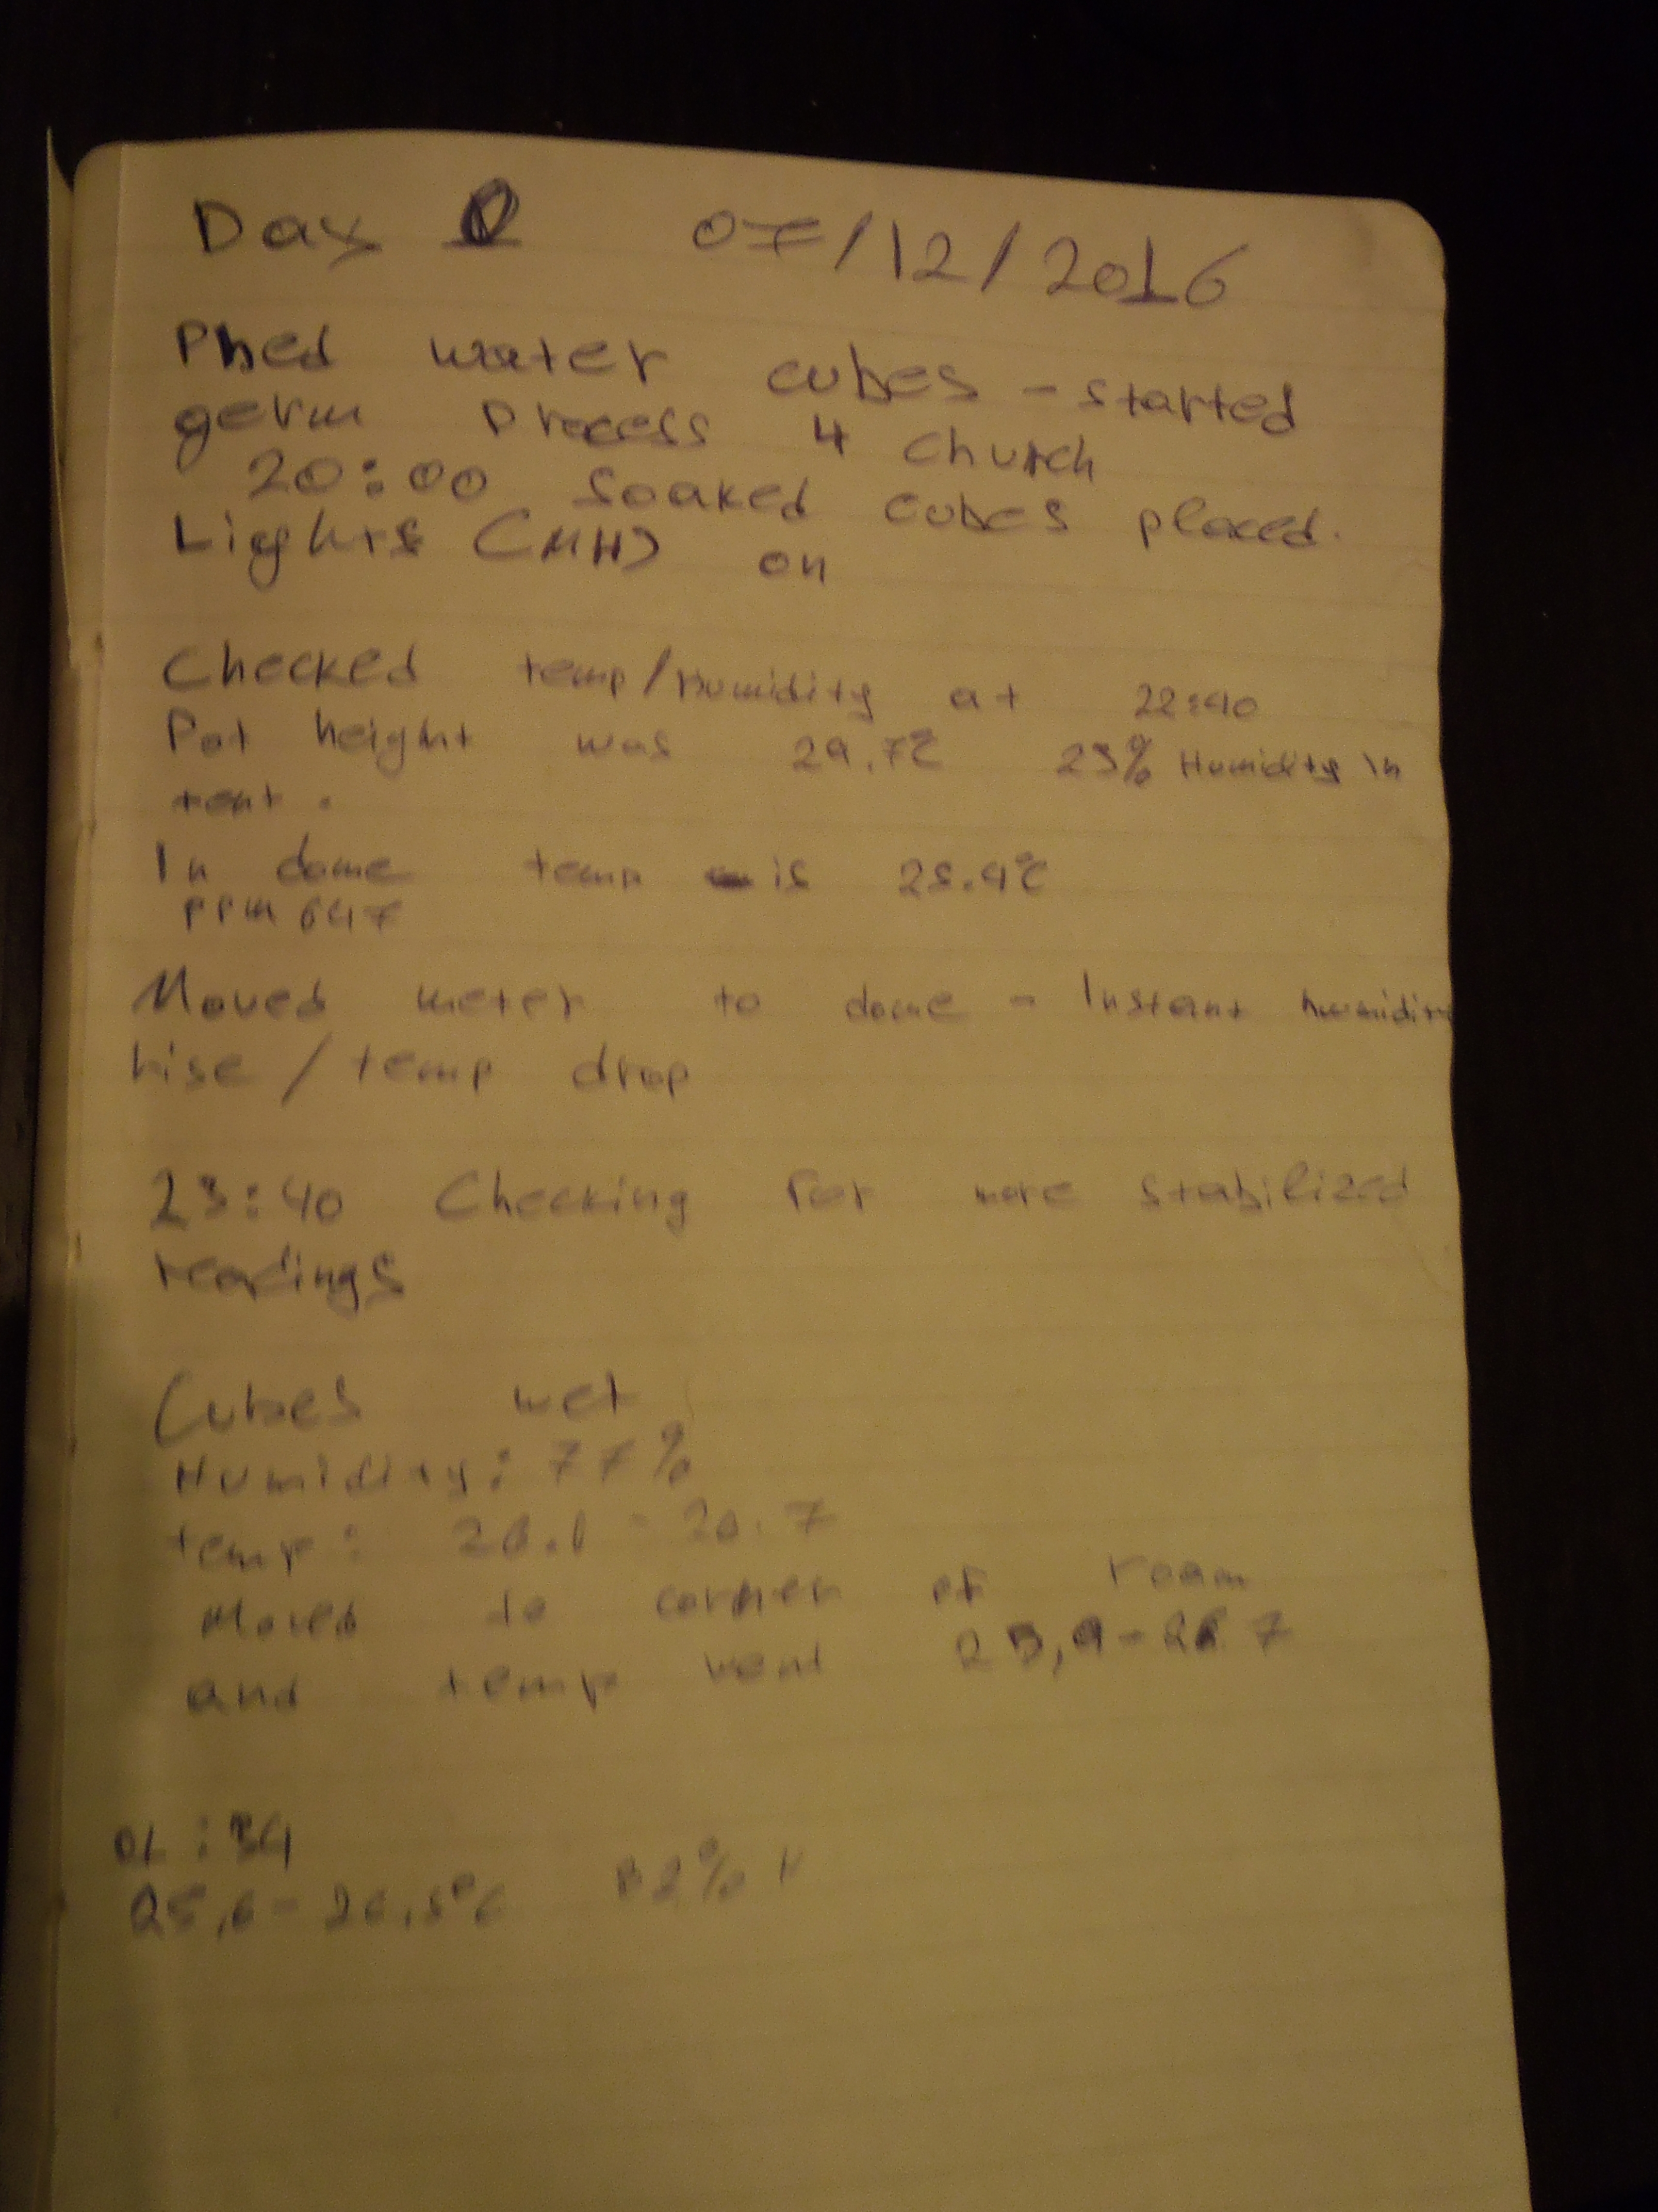 Day 0 07/12/2016
Phed water cubes - started
germ process 4 church
20:00 soaked cubes placed.
Lights (MH) on
Checked temp/Humidity at 22:40
Pot height was 29.7°C 23% Humidity in
tent.
In dome temp is 28.4°C
PPM 647
Moved meter to dome - Instant humidity
rise / temp drop
23:40 Checking for more stabilized
readings
Cubes wet
Humidity: 77%
temp: 26.1 - 26.7
Moved to corner of room
and temp went
:34
25,6 - 26,5°C 82% H